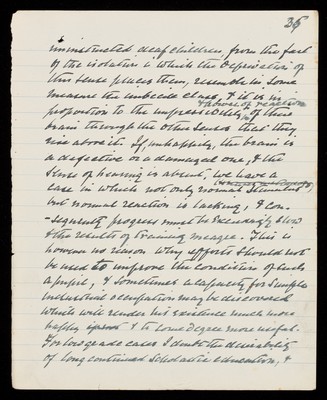 35
uninstructed deaf children, from the fact
of the isolation in which the deprivation of
this sense places them, resemble in some
measure the imbecile class, & it is in
& power of reaction
proportion to the impressibility of their
brain through the other senses that they
rise above it. If, unhappily, the brain is
a defective or a damaged one, & the
sense of hearing is absent, we have a
case in which not only normal stimulus
but normal reaction is lacking, & con-
-sequently progress must be exceedingly slow
& the results of training meagre. This is
however no reason why efforts should not
be used to improve the condition of such
a pupil, & sometimes a capacity for simple
industrial occupation may be discovered
which will render his existence much more
happy & to some degree more useful.
For low grade cases I doubt the desirability
of long continued scholastic education, &